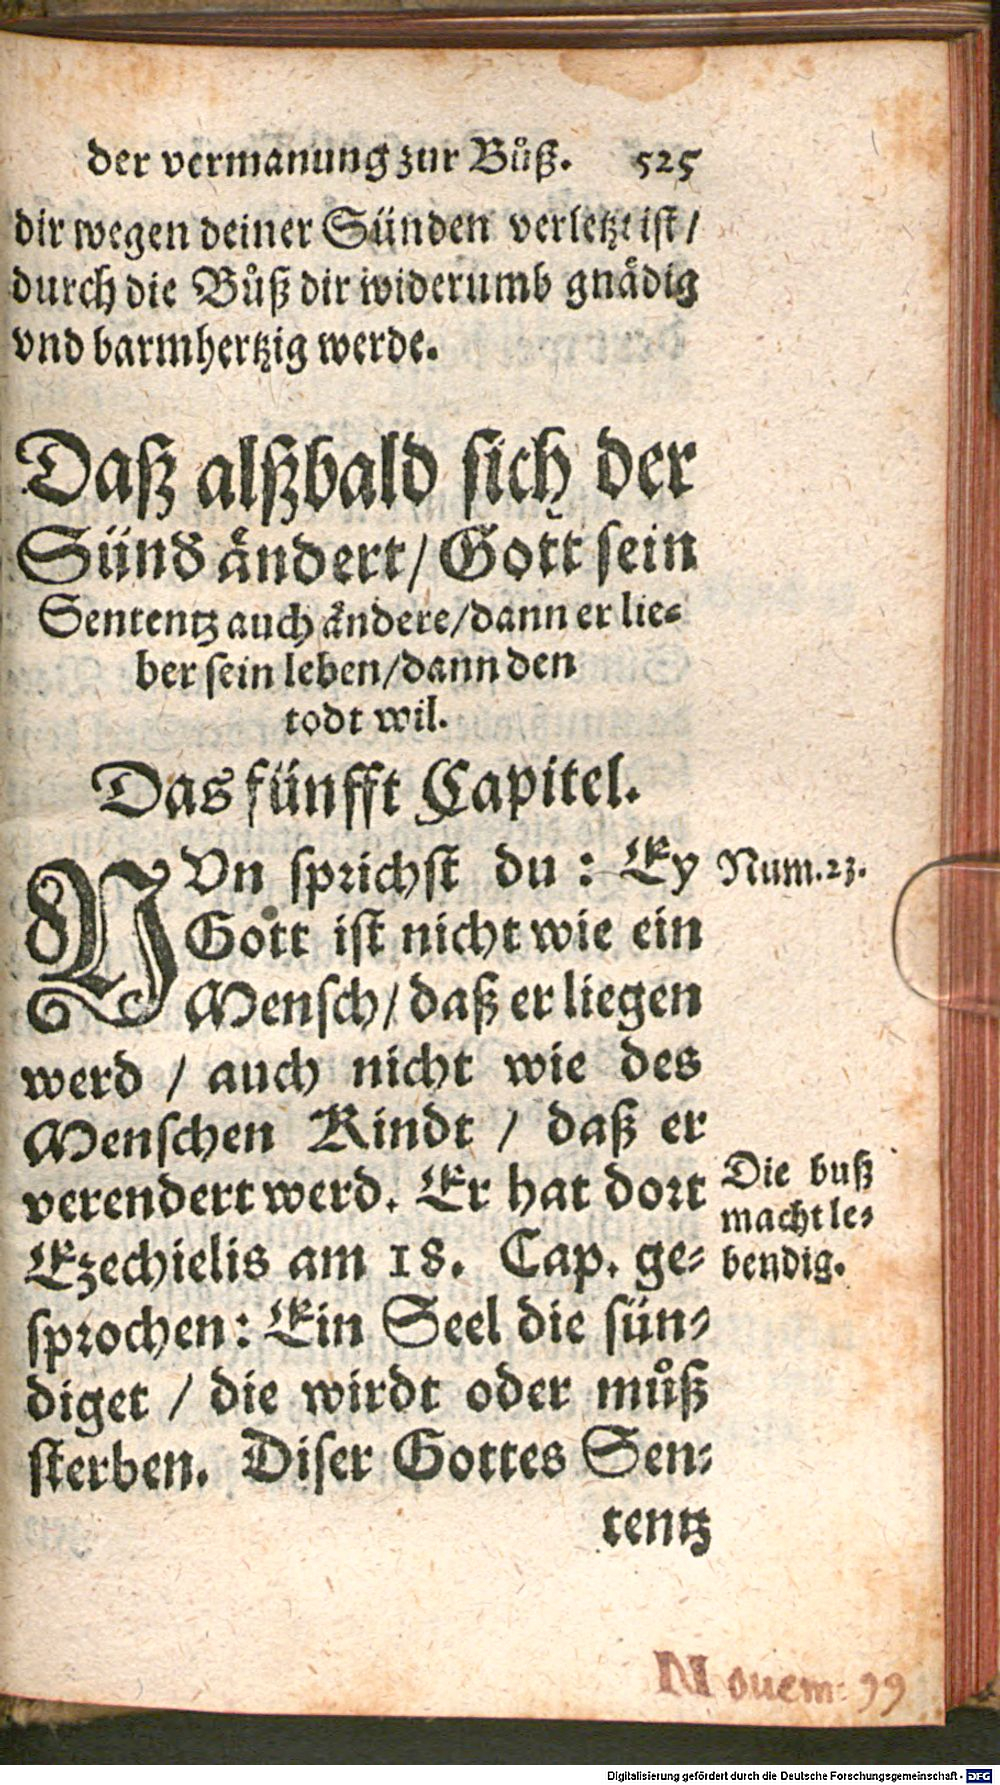 der vermanung zur Bůß. 525
dir wegen deiner Sünden verletzt ist /
durch die Bůß dir widerumb gnådig
vnd barmhertzig werde.
Daß alßbald sich der
Sünd åndert / Gott sein
Sententz auch åndere / dann er lie=
ber sein leben / dann den
todt wil.
Das fünfft Capitel.
NVn sprichst du : Ey
Num. 23.
Gott ist nicht wie ein
Mensch / daß er liegen
werd / auch nicht wie des
Menschen Kindt / daß er
verendert werd. Er hat dort
Ezechielis am 18. Cap. ge=
sprochen : Ein Seel die sün=
diget / die wirdt oder můß
sterben. Diser Gottes Sen=
tentz
Die buß
macht le=
bendig.
Nouem: 99
Digitalisierung gefördert durch die Deutsche Forschungsgemeinschaft - DFG